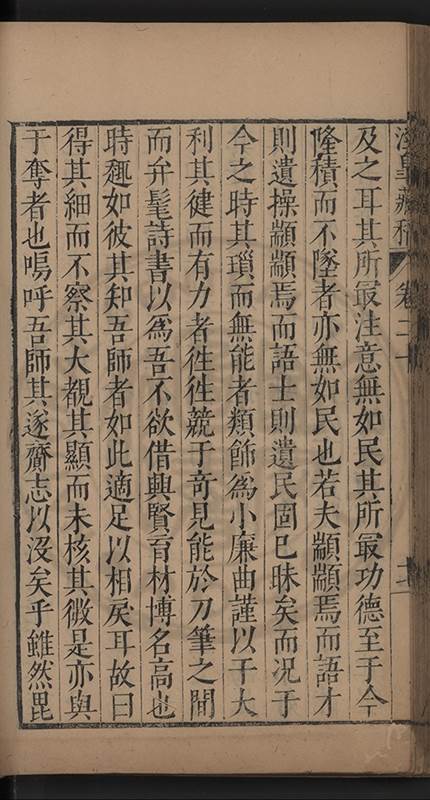 卷二十
及之耳其所最注意無如民其所最功德至于今
隆積而不墜者亦無如民也若夫顓顓焉而語才
則遺操顓顓焉而語士則遺民固已昧矣而況于
今之時其瑣而無能者類飾為小廉曲謹以干大
利其健而有力者徃徃競于奇見能於刀筆之間
而弁髦詩書以為吾不欲借興賢育材博名高也
時趣如彼其知吾師者如此適足以相戾耳故曰
得其細而不察其大覩其顯而未核其微是亦與
于奪者也嗚呼吾師其遂齎志以沒矣乎雖然毘